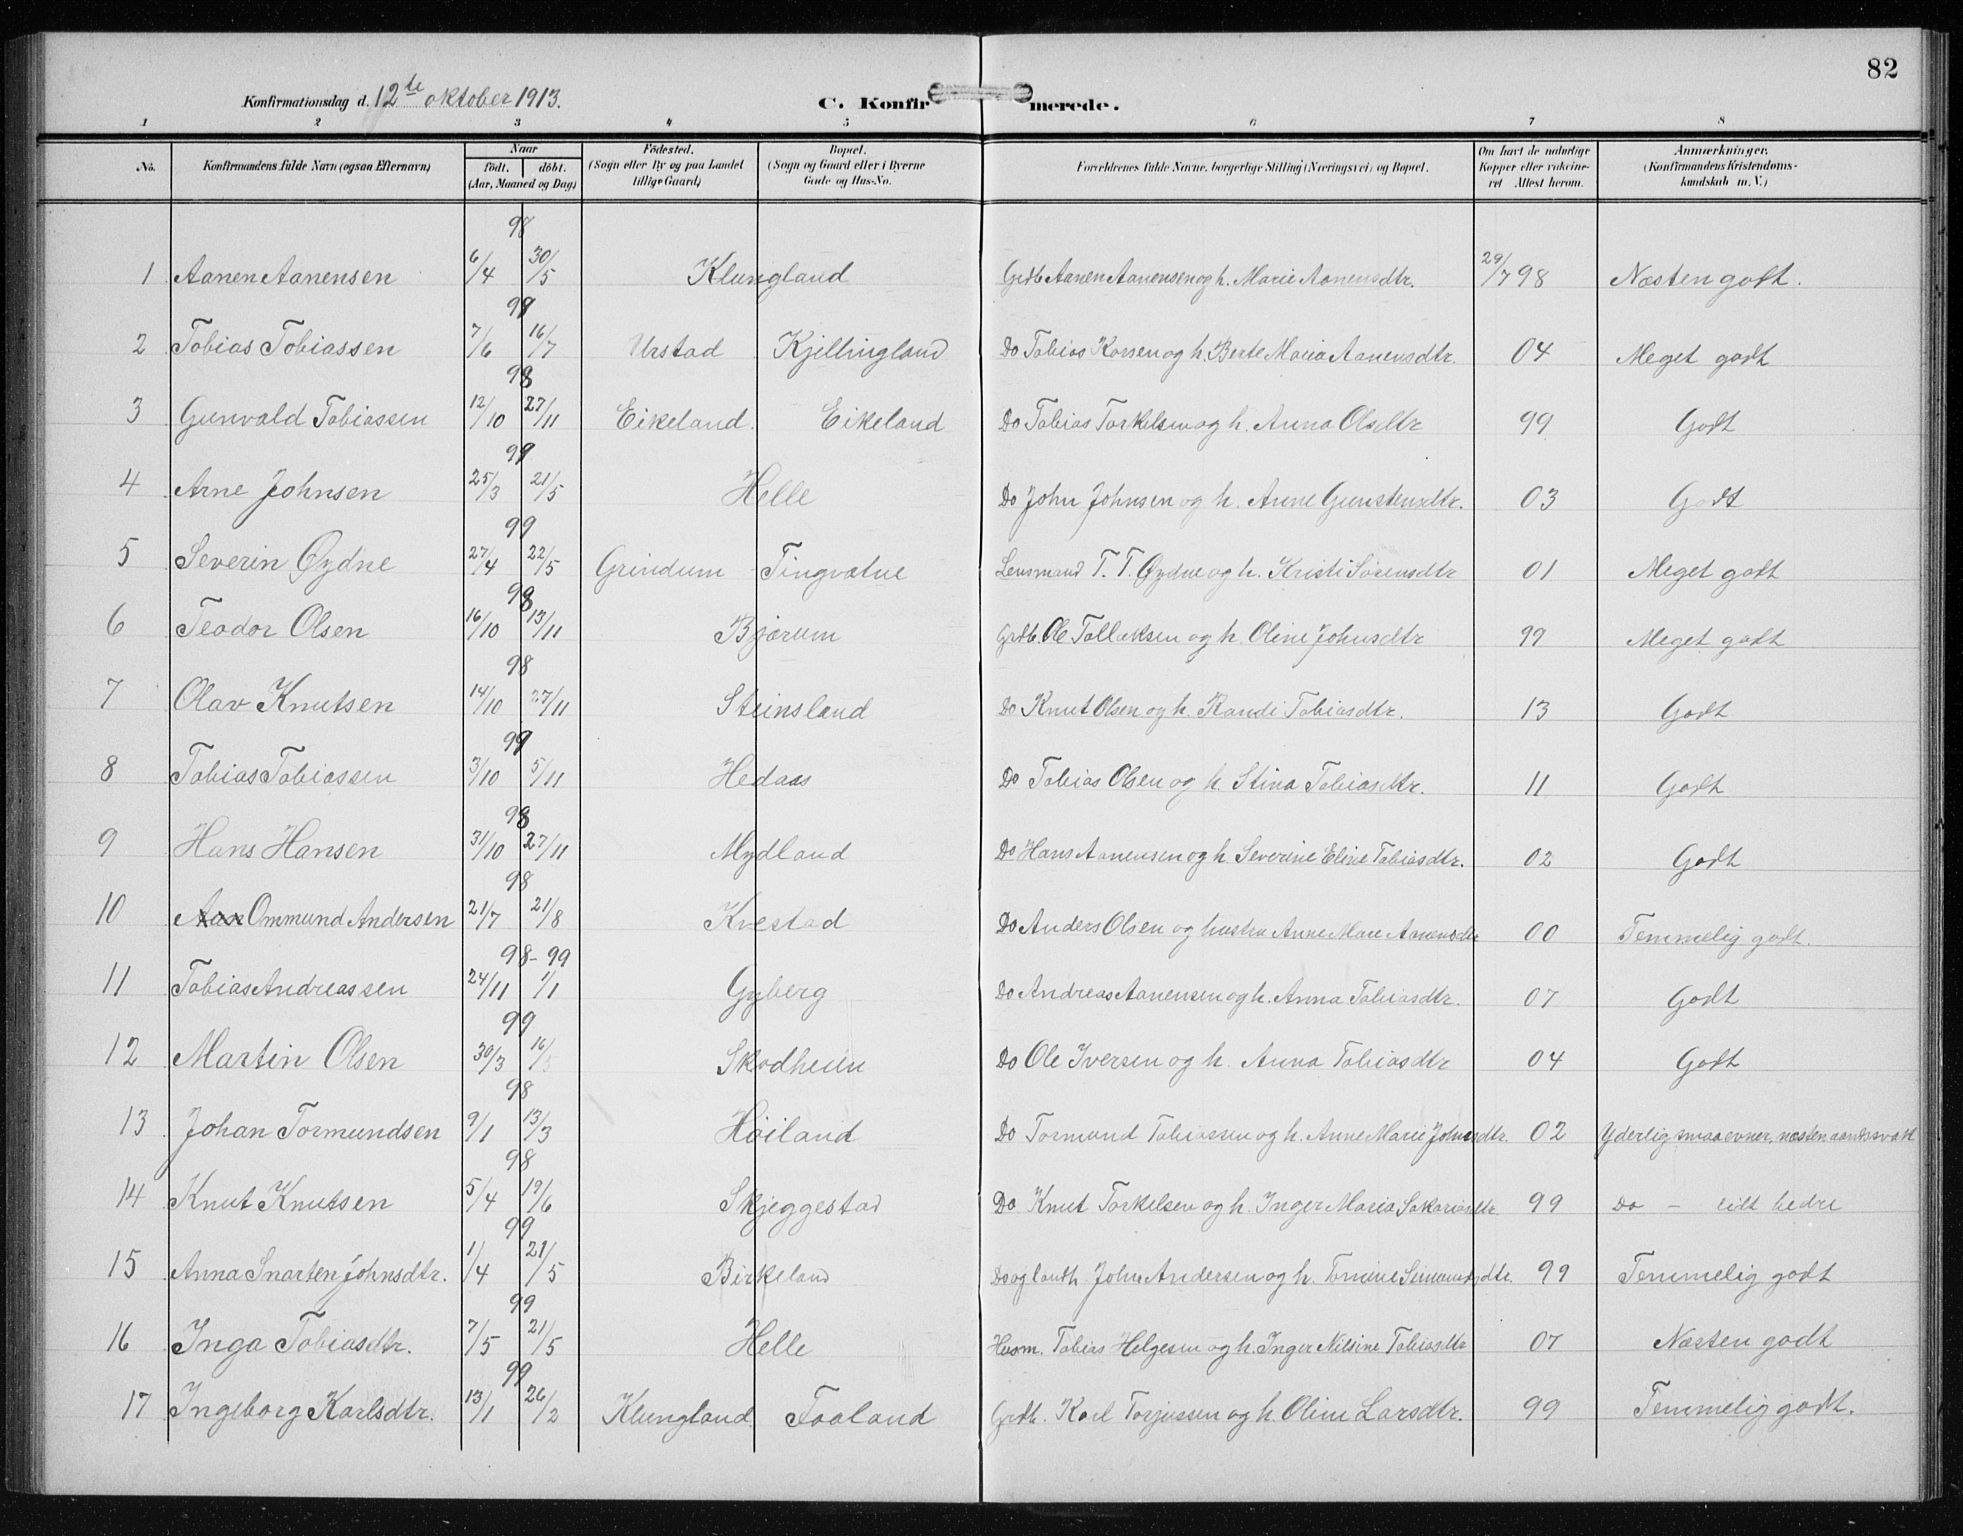 82
Konfirmationsdag d. 12te oktober 1913.
C. Konfirmerede.
1 2 3 4 5 6 7 8
No. Konfirmandens fulde Navn (ogsaa Efternavn) Naar födt. döbt. (Aar, Maaned og Dag) Födested. (Sogn eller By og paa Landet tillige Gaard) Bopæl. (Sogn og Gaard eller i Byerne Gade og Hus-No. Forældrenes fulde Navne, borgerlige Stilling (Næringsvei) og Bopæl. Om havt de naturlige Kopper eller vakcineret. Attest herom. Anmærkninger. (Konfirmandens Kristendomskundskab m. V.)
98
1 Aanen Aanensen 6/4 30/5 Klungland Grdb Aanen Aanensen og h. Marie Aanensdtr. 29/7 98 Næsten godt.
99
2 Tobias Tobiassen 7/6 16/7 Urstad Kjellingland Do Tobias Korsen og h. Berte Maria Aanensdtr. 04 Meget godt
98
3 Gunvald Tobiassen 12/10 27/11 Eikeland. Eikeland Do Tobias Torkelsen og h. Anna Olsdtr 99 Godt
99
4 Arne Johnsen 25/3 21/5 Helle Do John Johnsen og h. Anne Gunstensdtr. 03 Godt
99
5 Severin Øydne 27/4 22/5 Grindum Tingvatne Lensmand T. T. Øydne og h. Kristi Sørensdtr 01 Meget godt
98
6 Teodor Olsen 16/10 13/11 Bjærum Grdb. Ole Tollaksen og h. Oline Johnsdtr 99 Meget godt
98
7 Olav Knutsen 14/10 27/11 Steinsland Do Knut Olsen og h. Randi Tobiasdtr. 13 Godt
99
8 Tobias Tobiassen 3/10 5/11 Hedaas Do Tobias Olsen og h. Stina Tobiasdtr. 11 Godt
98
9 Hans Hansen 31/10 27/11 Mydland Do Hans Aanensen og h. Severine Eline Tobiasdtr. 02 Godt
98
10 Ommund Andersen 21/7 21/8 Kvestad Do Anders Olsen og hustru Anne Marie Aanensdtr 00 Temmelig godt.
98-99
11 Tobias Andreassen 24/11 1/1 Gyberg Do Andreas Aanensen og h. Anna Tobiasdtr. 07 Godt
99
12 Martin Olsen 30/3 16/5 Skodheim Do Ole Iversen og h. Anna Tobiasdtr 04 Godt
98
13 Johan Tormundsen 9/1 13/3 Høiland Do Tormund Tobiassen og h. Anne Marie Johnsdtr. 02 Yderlig smaa evner, næsten aandssvak
98
14 Knut Knutsen 5/4 19/6 Skjeggestad Do Knut Torkelsen og h. Inger Maria Sakariasdtr. 99 Do - lidt bedre
99
15 Anna Snarten Johnsdtr. 1/4 21/5 Birkeland Do og landh. John Andersen og h. Tomine Simonsdtr. 99 Temmelig godt
99
16 Inga Tobiasdtr. 7/5 21/5 Helle Husm. Tobias Helgesen og h. Inger Nilsine Tobiasdtr 07 Næsten godt
99
17 Ingeborg Karlsdtr. 13/1 26/2 Klungland Faaland Grdb. Karl Torjussen og h. Oline Larsdtr. 99 Temmelig godt.